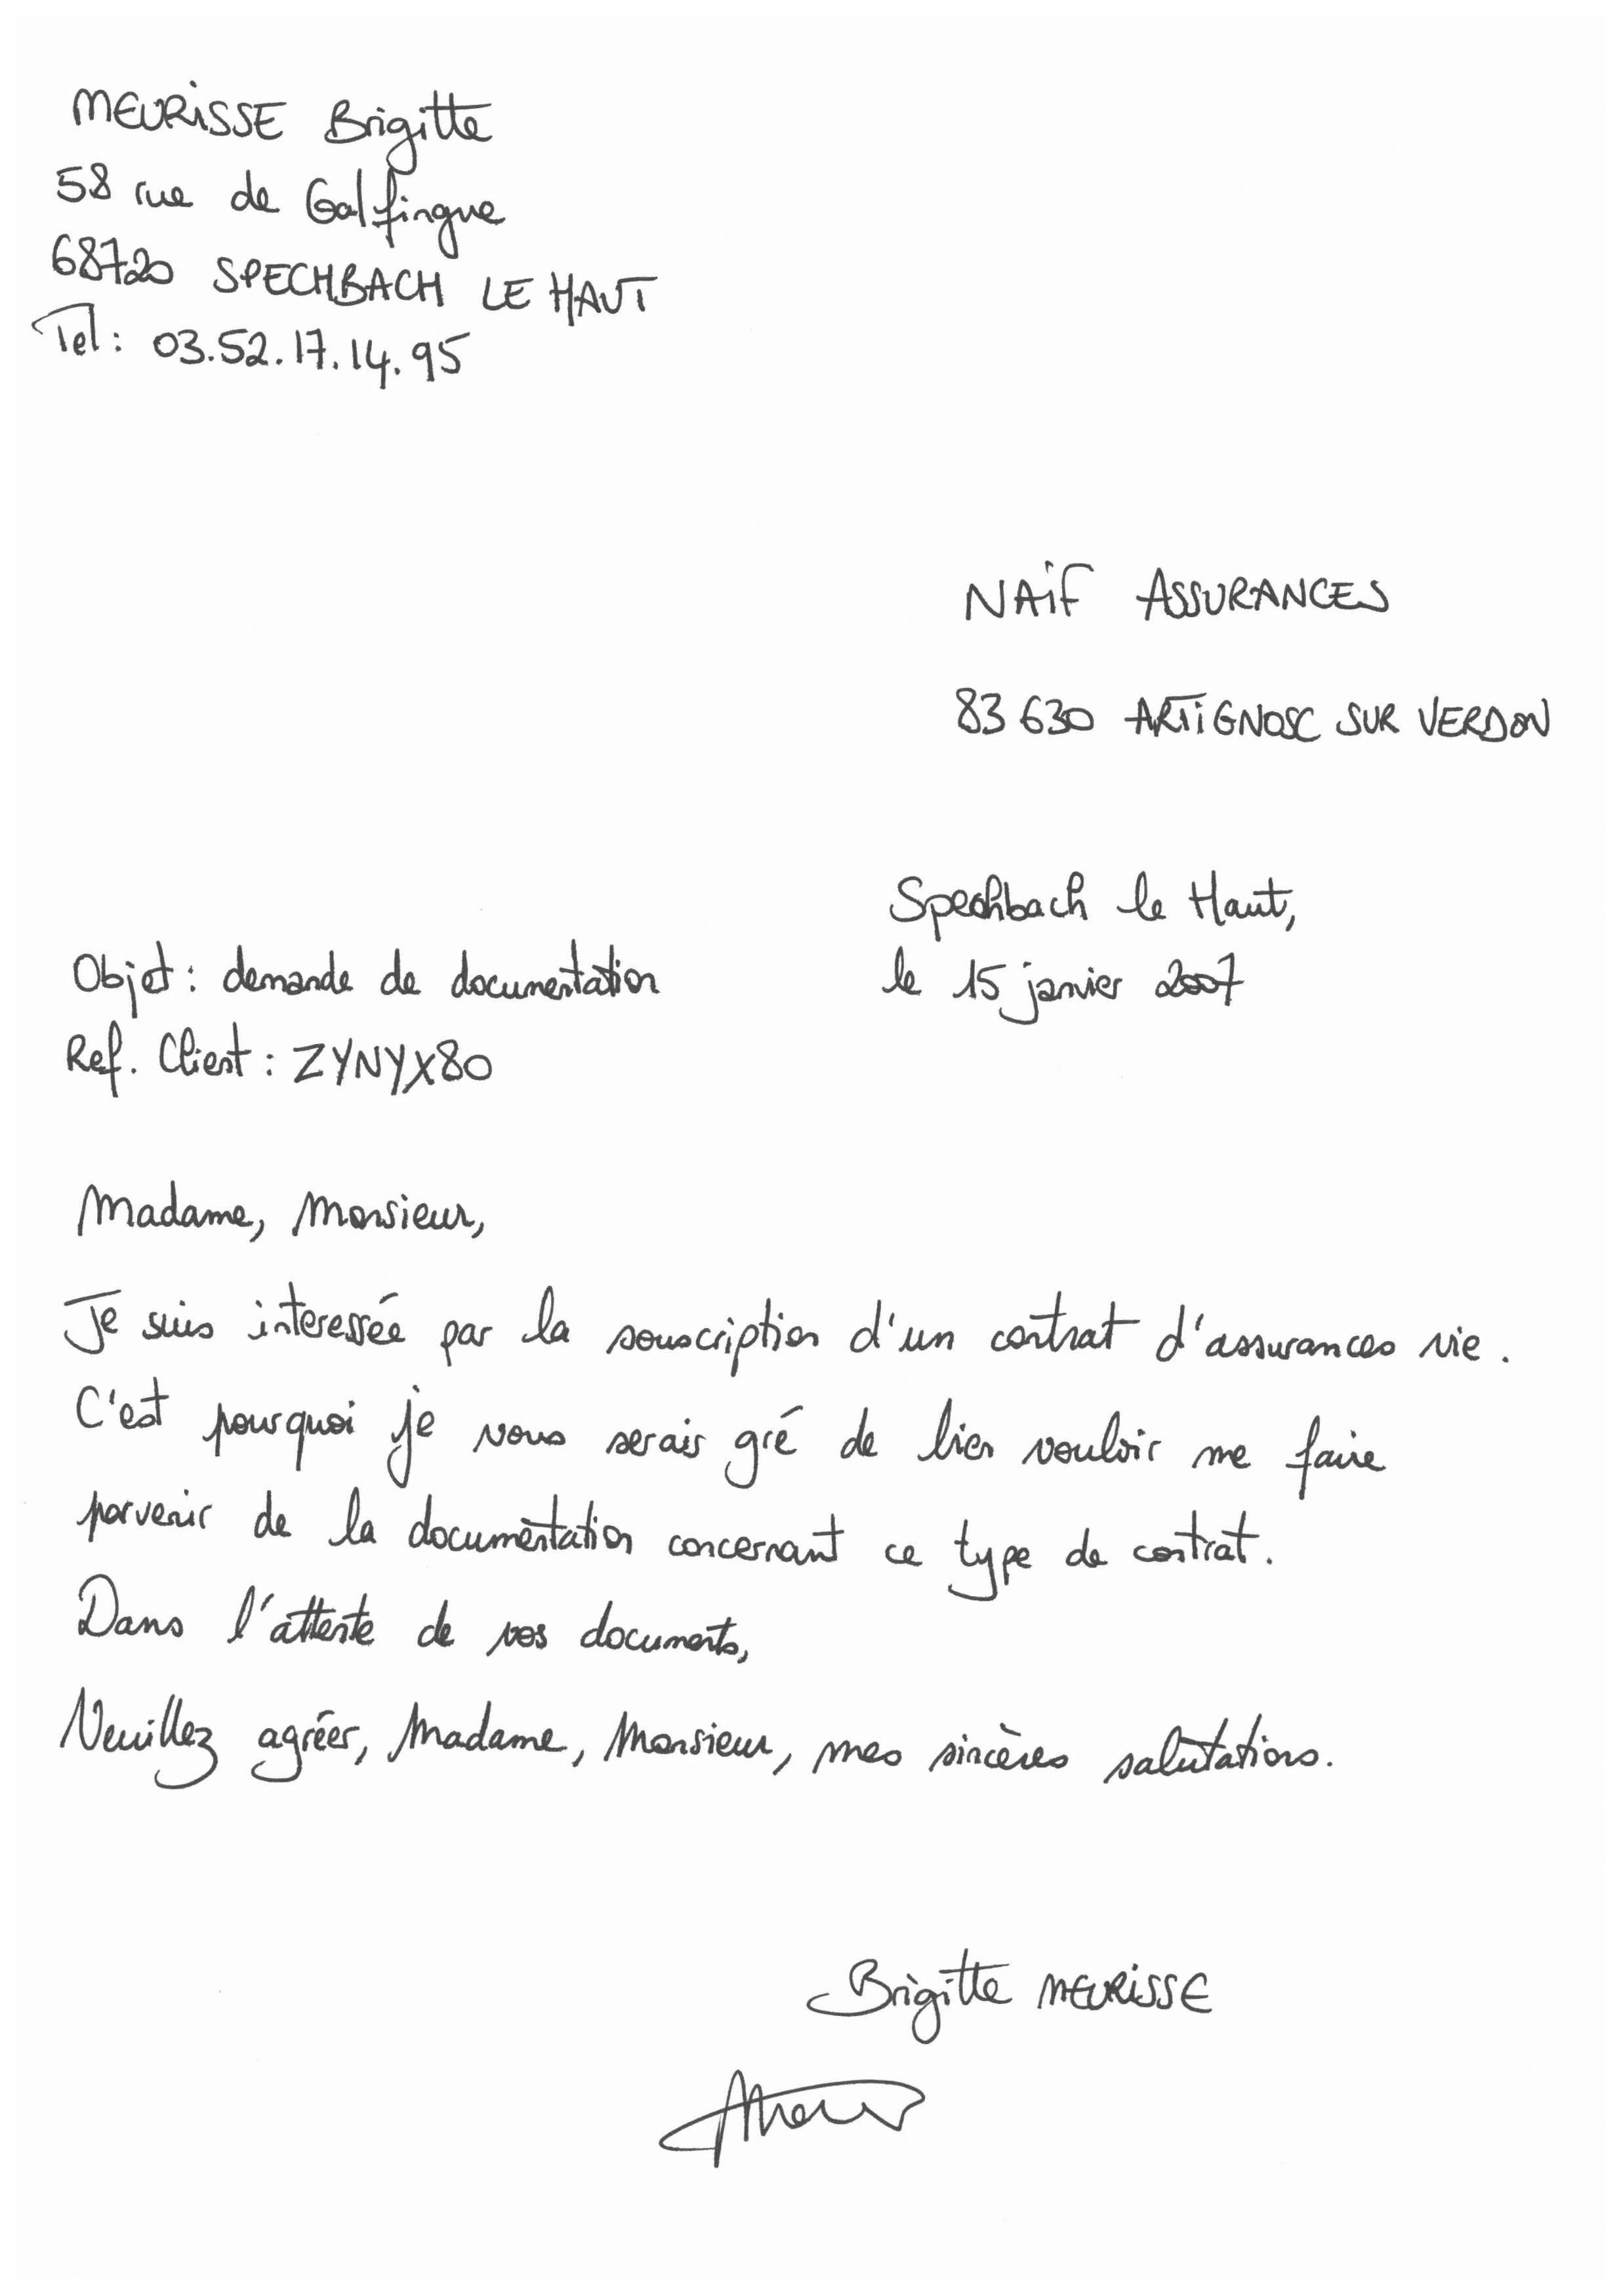 MEURISSE Brigitte
58 rue de Galfingue
68720 SPECHBACH LE HAUT
Tel : 03.52.17.14.95
NAIF ASSURANCES
83 630 ARTIGNOSC SUR VERDON
Spechbach le Haut,
le 15 janvier 2007
Objet : demande de documentation
Ref. Client : ZYNYX80
Madame, Monsieur,
Je suis interessée par la souscription d'un contrat d'assurances vie.
C'est pourquoi je vous serais gré de bien vouloir me faire
parvenir de la documentation concernant ce type de contrat.
Dans l'attente de vos documents,
Veuillez agréer, Madame, Monsieur, mes sincères salutations.
Brigitte MEURISSE